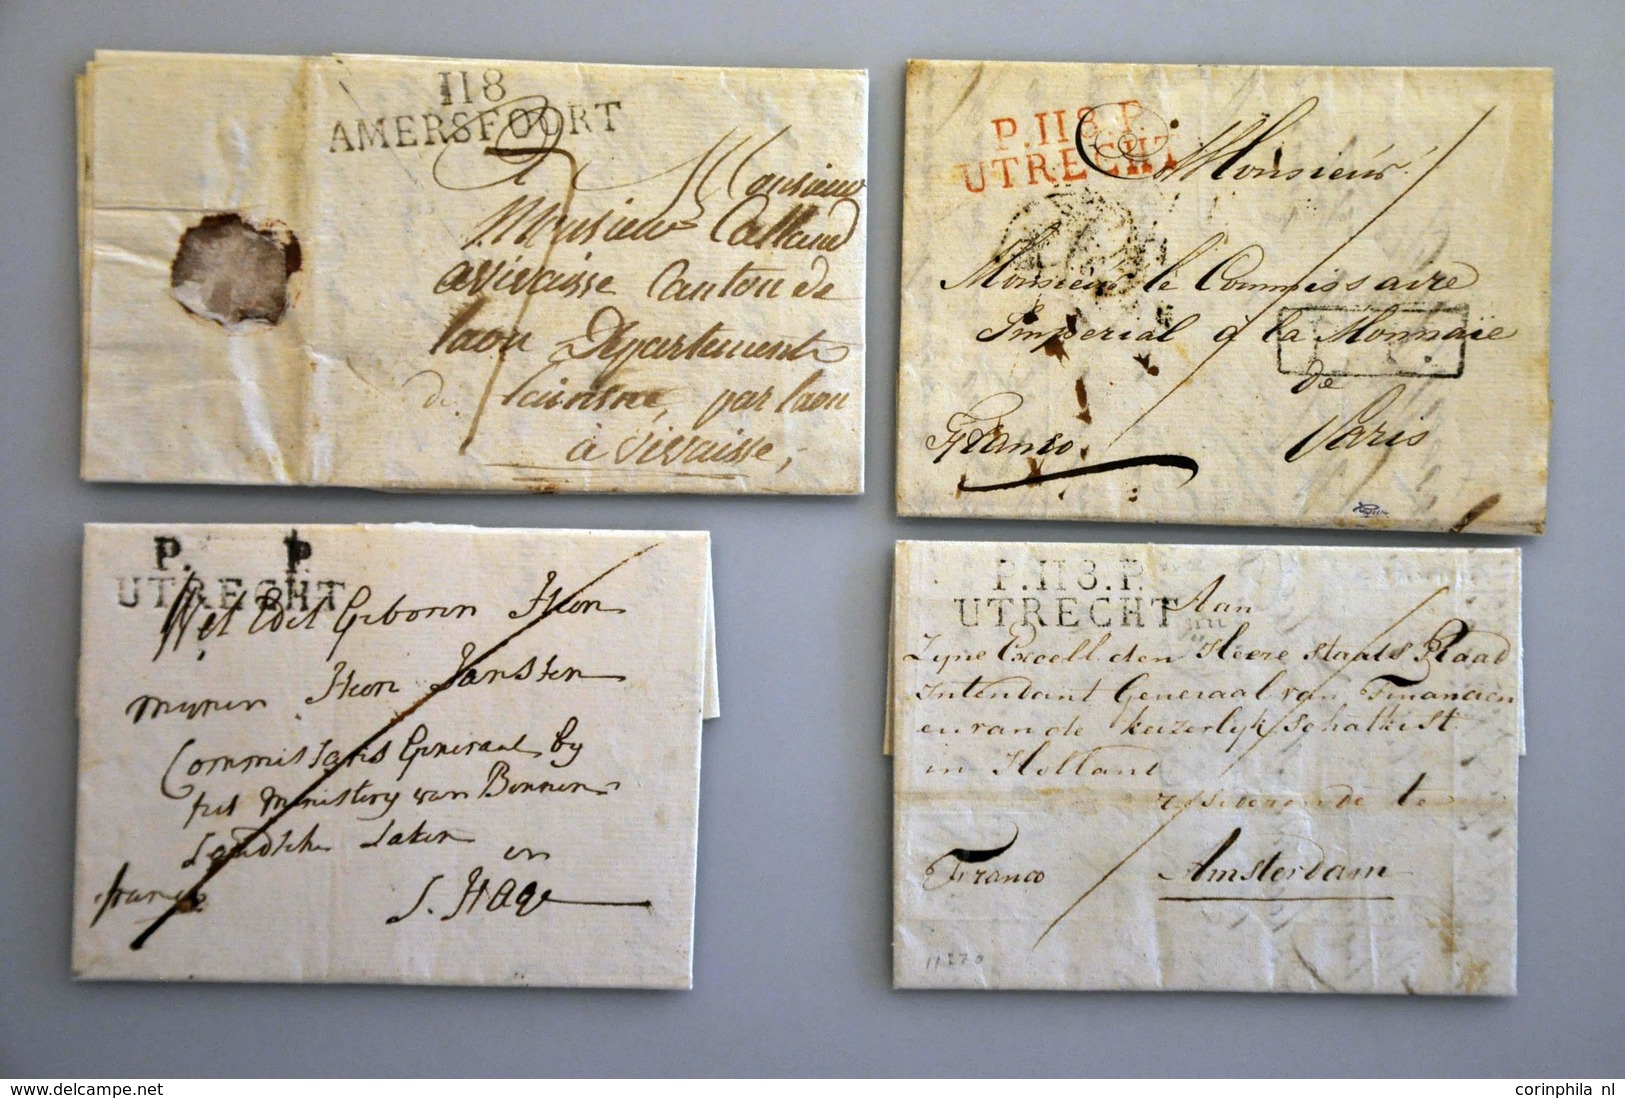 118
AMERSFOORT
Monsieur
Monsieur Calland
a vivaisse Canton de
laon Département
de laonsne, par laon
à Vivaisse,
P.118.P.
UTRECHT
Monsieur
Monsieur le Commissaire
Imperial a la Monnaie
de
Franco Paris
P. P.
UTRECHT
Wel Edel Geboren Heer
mijnen Heer Janssen
Commissaris Generaal by
het Ministery van Binnen
Landsche Zaken
in
franco S. Hage
P.118.P.
UTRECHT
Aan
Zyne Excell. den Heere Staats Raad
Intendant Generaal van Financien
en van de keizerlyk Schatkist
in Holland
te
Franco Amsterdam
11270
corinphila nl